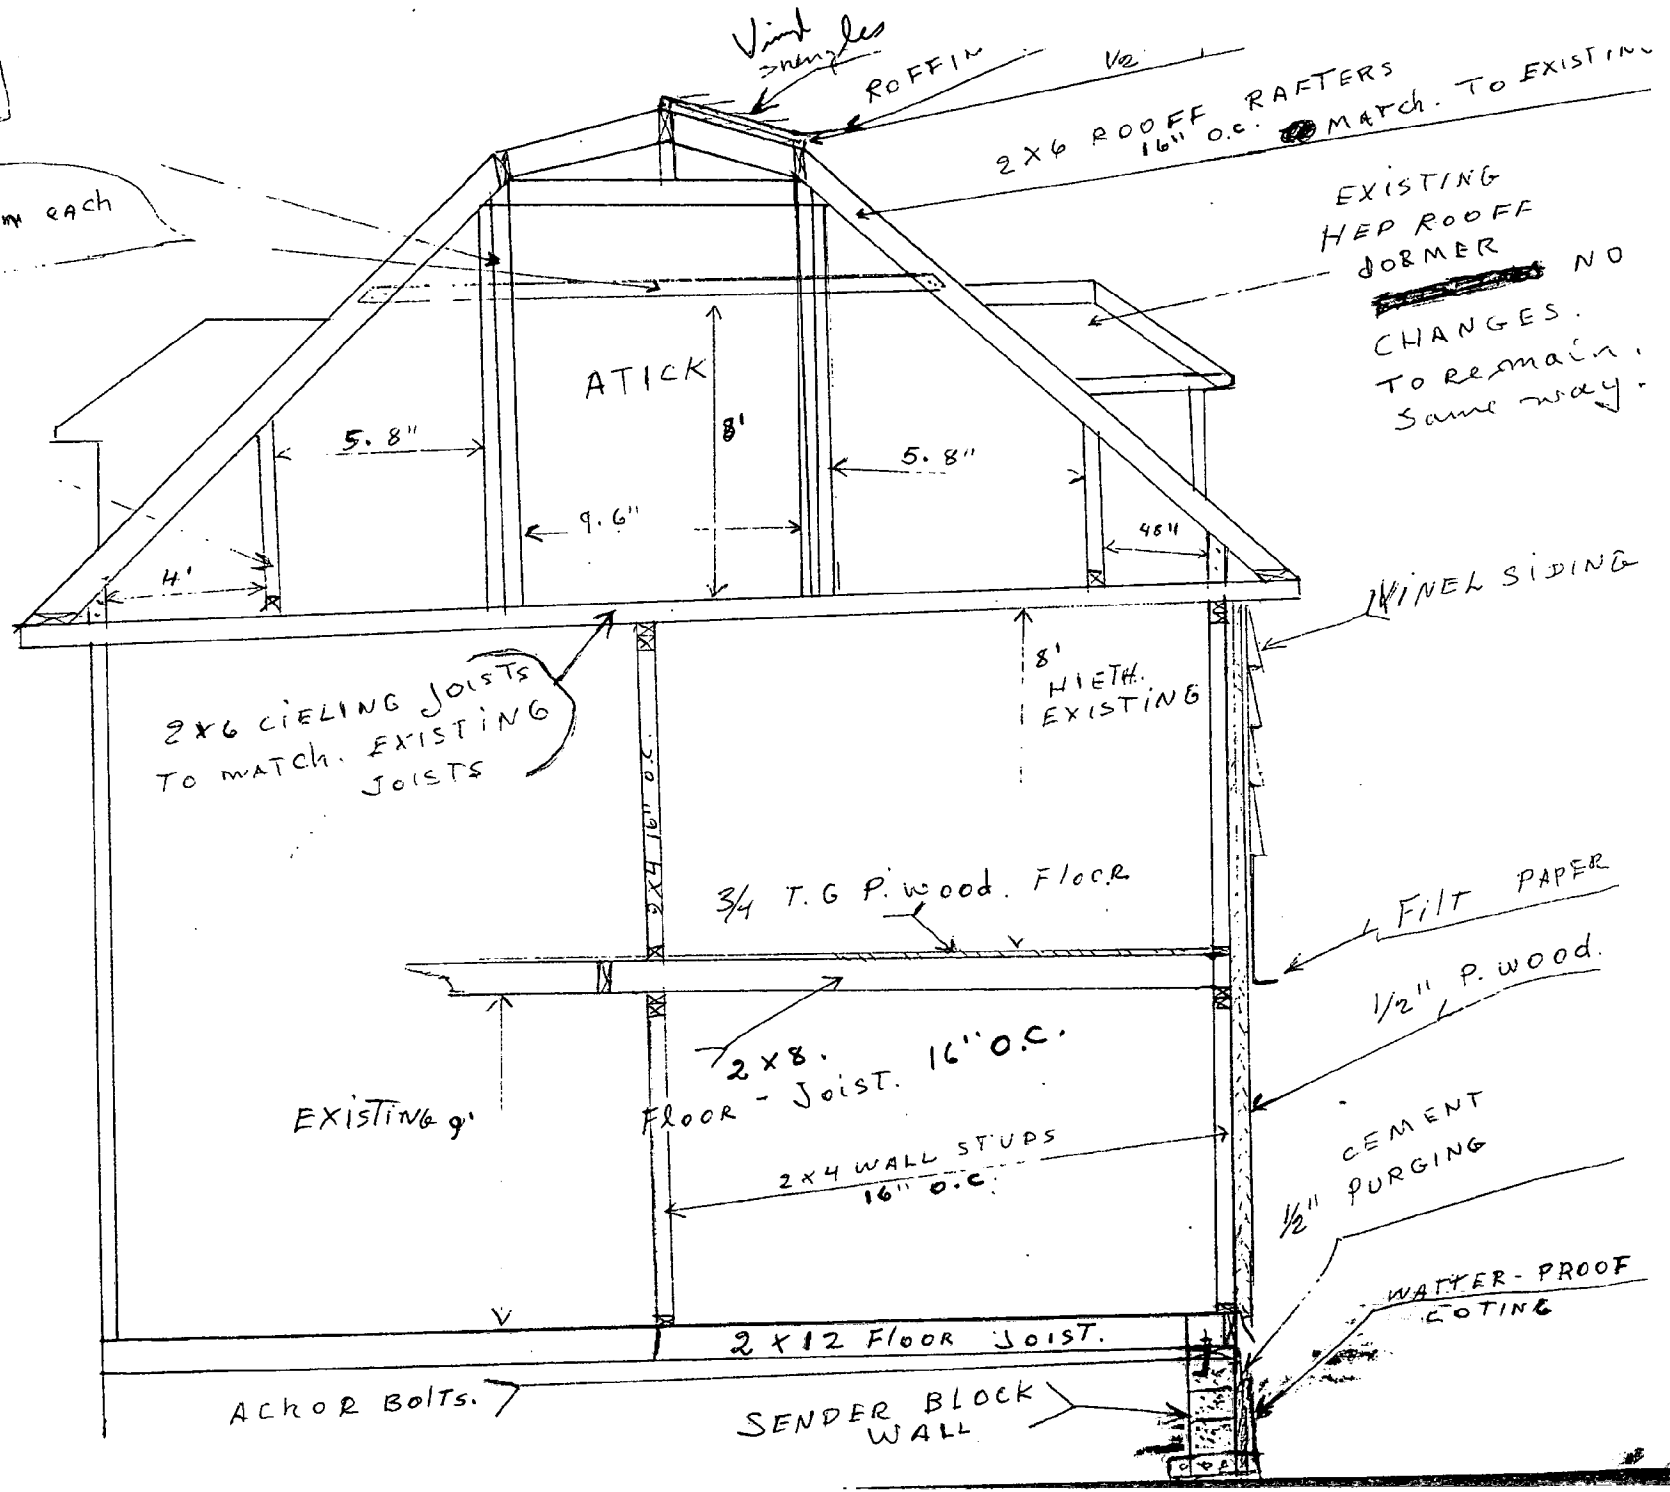 ROFFIN
1/2
2X6 ROOFF RAFTERS
16" O.C. MATCh. TO EXISTING
each
EXISTING
HEP ROOFF
dORMER
NO
CHANGES.
TO Remain.
Same way.
ATICK
8'
5.8"
5.8"
9.6"
4'
48"
VINEL SiDING
2X6 CiELING JOISTS
TO MATCh. EXISTING
JOISTS
8'
HIETH.
EXISTING
2X4 16" O.C.
3/4 T.G P.wood. Floor
FilT PAPER
1/2" P.wood.
2X8.
FlOOR - JoiST. 16" O.C.
EXISTING 9'
2X4 WALL STUDS
16" O.C.
CEMENT
1/2" PURGING
WATTER-PROOF
COTING
2X12 FlOOR JOIST.
AChOR BOlTS.
SENDER BLOCK
WALL